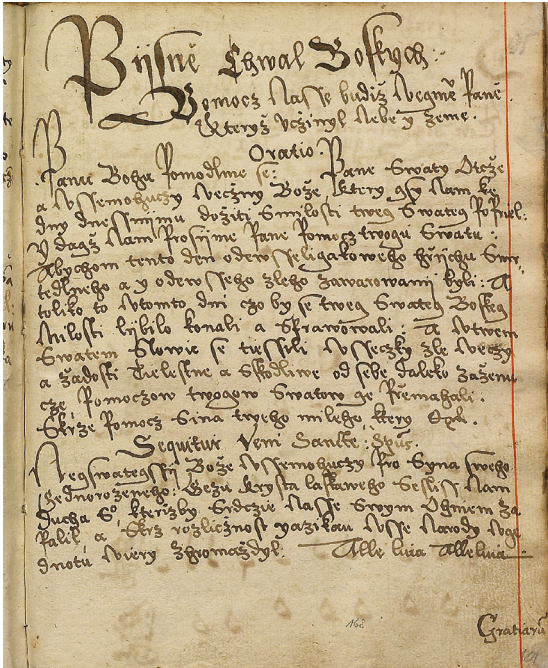 Pijsnē Chwal Boskych
Pomocz Nasse budiž wegmē Pane
Kteryž vczinyl Nebe y Zeme.
Oratio.
Panu Bohu Pomodlme se: Pane Swaty Otcže
a wssemohuczy wecžny Bože ktery gsy Nam ke
dny dnessnimu dožiti Smilosti tweg Swateg Popřiel:
Y dagž Nam Prosyme Pane Pomocz twogu Swatu:
Abychom tento den odewsseligakoweho hřijchu Smr
tedlneho a y odewsseho zleho zawarowanij byli: A
toliko to wtomto dni czo by se tweg Swateg Boskeg
Milosti lijbilo konali a Skrawowali: A wtwem
Swatem Slowie se tiessili wsseczky zle weczy
a žadosti Tielestne a Skodliwe od sebe daleko zaženu
cze Pomoczow twogow Swatow ge Přemahali.
Skrze Pomocz Sina tweho mileho ktery
Sequitur Veni Sancte: Spūs.
Negswategssij Bože wssemohuczy Pro Syna sweho
gednorozeneho: Gezu krysta laskaweho Sesliss Nam
Ducha S° kterižby Srdczie Nasse Swym Ohniem za
Palil a Skrz rozlicžnost yazikuu wsse Narody wge
dnotu wiery zhromaždyl: Alle luia Alleluia
168
Gratiarū